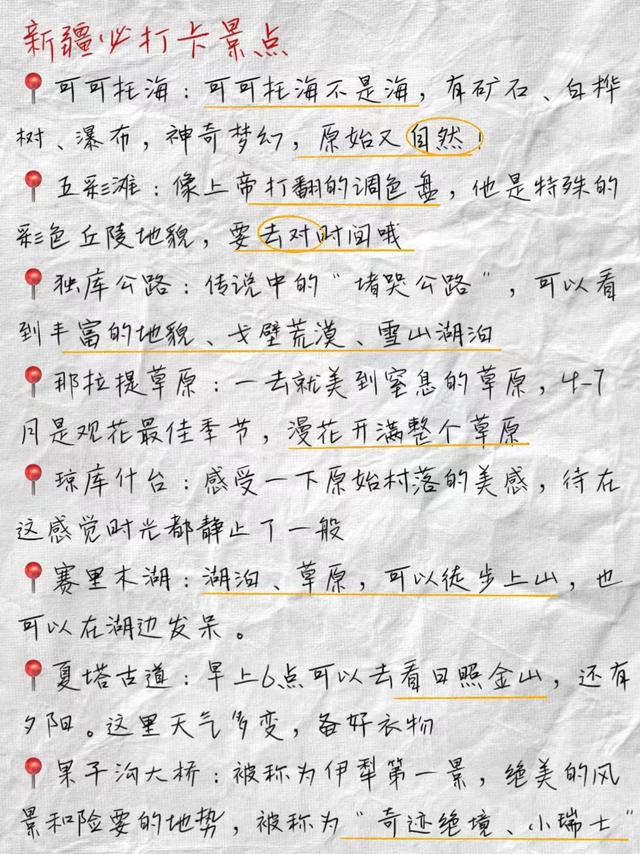 新疆必打卡景点
可可托海：可可托海不是海，有矿石、白桦
树、瀑布，神奇梦幻，原始又自然！
五彩滩：像上帝打翻的调色盘，他是特殊的
彩色丘陵地貌，要去对时间哦
独库公路：传说中的“堵哭公路”，可以看
到丰富的地貌、戈壁荒漠、雪山湖泊
那拉提草原：一去就美到窒息的草原，4-7
月是观花最佳季节，漫花开满整个草原
琼库什台：感受一下原始村落的美感，待在
这感觉时光都静止了一般
赛里木湖：湖泊、草原，可以徒步上山，也
可以在湖边发呆。
夏塔古道：早上6点可以去看日照金山，还有
夕阳。这里天气多变，备好衣物
果子沟大桥：被称为伊犁第一景，绝美的风
景和险要的地势，被称为“奇迹绝境、小瑞士”